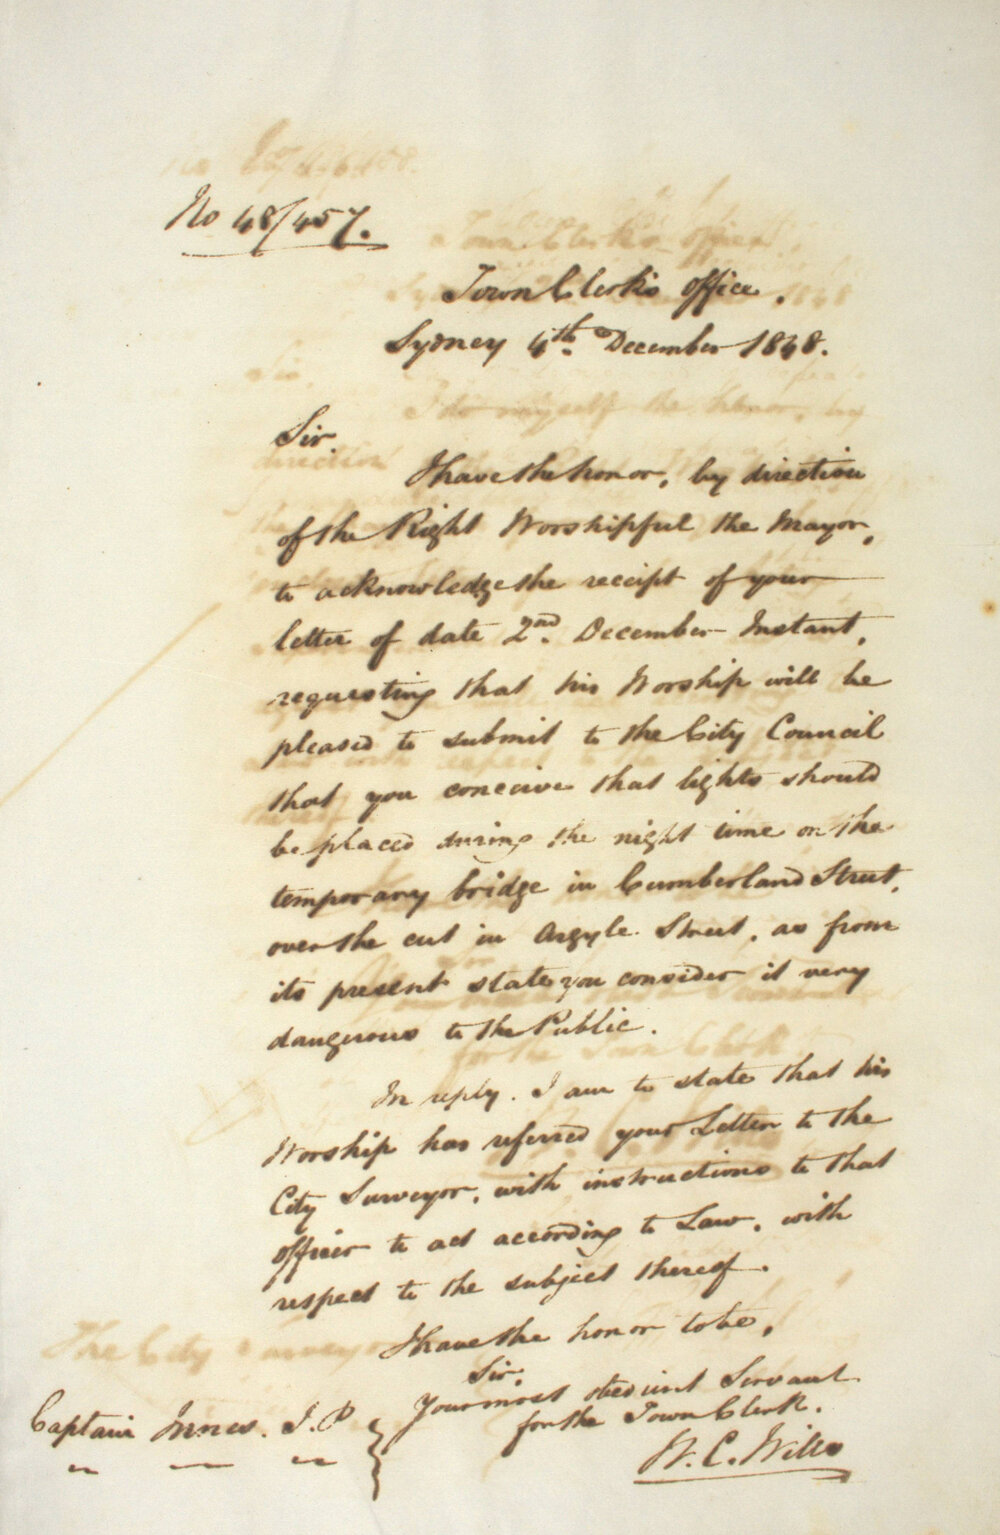 No 48/457.
Town Clerk's office,
Sydney 4th. December 1848.
Sir,
I have the honor, by direction
of the Right Worshipful the Mayor,
to acknowledge the receipt of your
letter of date 2nd. December Instant,
requesting that his Worship will be
pleased to submit to the City Council
that you conceive that lights should
be placed during the night time on the
temporary bridge in Cumberland Street,
over the cut in Argyle Street, as from
its present state you consider it very
dangerous to the Public.
In reply. I am to state that his
Worship has referred your Letter to the
City Surveyor, with instructions to that
officer to act according to Law, with
respect to the subject thereof.
I have the honor to be,
Sir,
Your most obedient Servant
for the Town Clerk.
W. C. Wills
Captain Innes. J. P